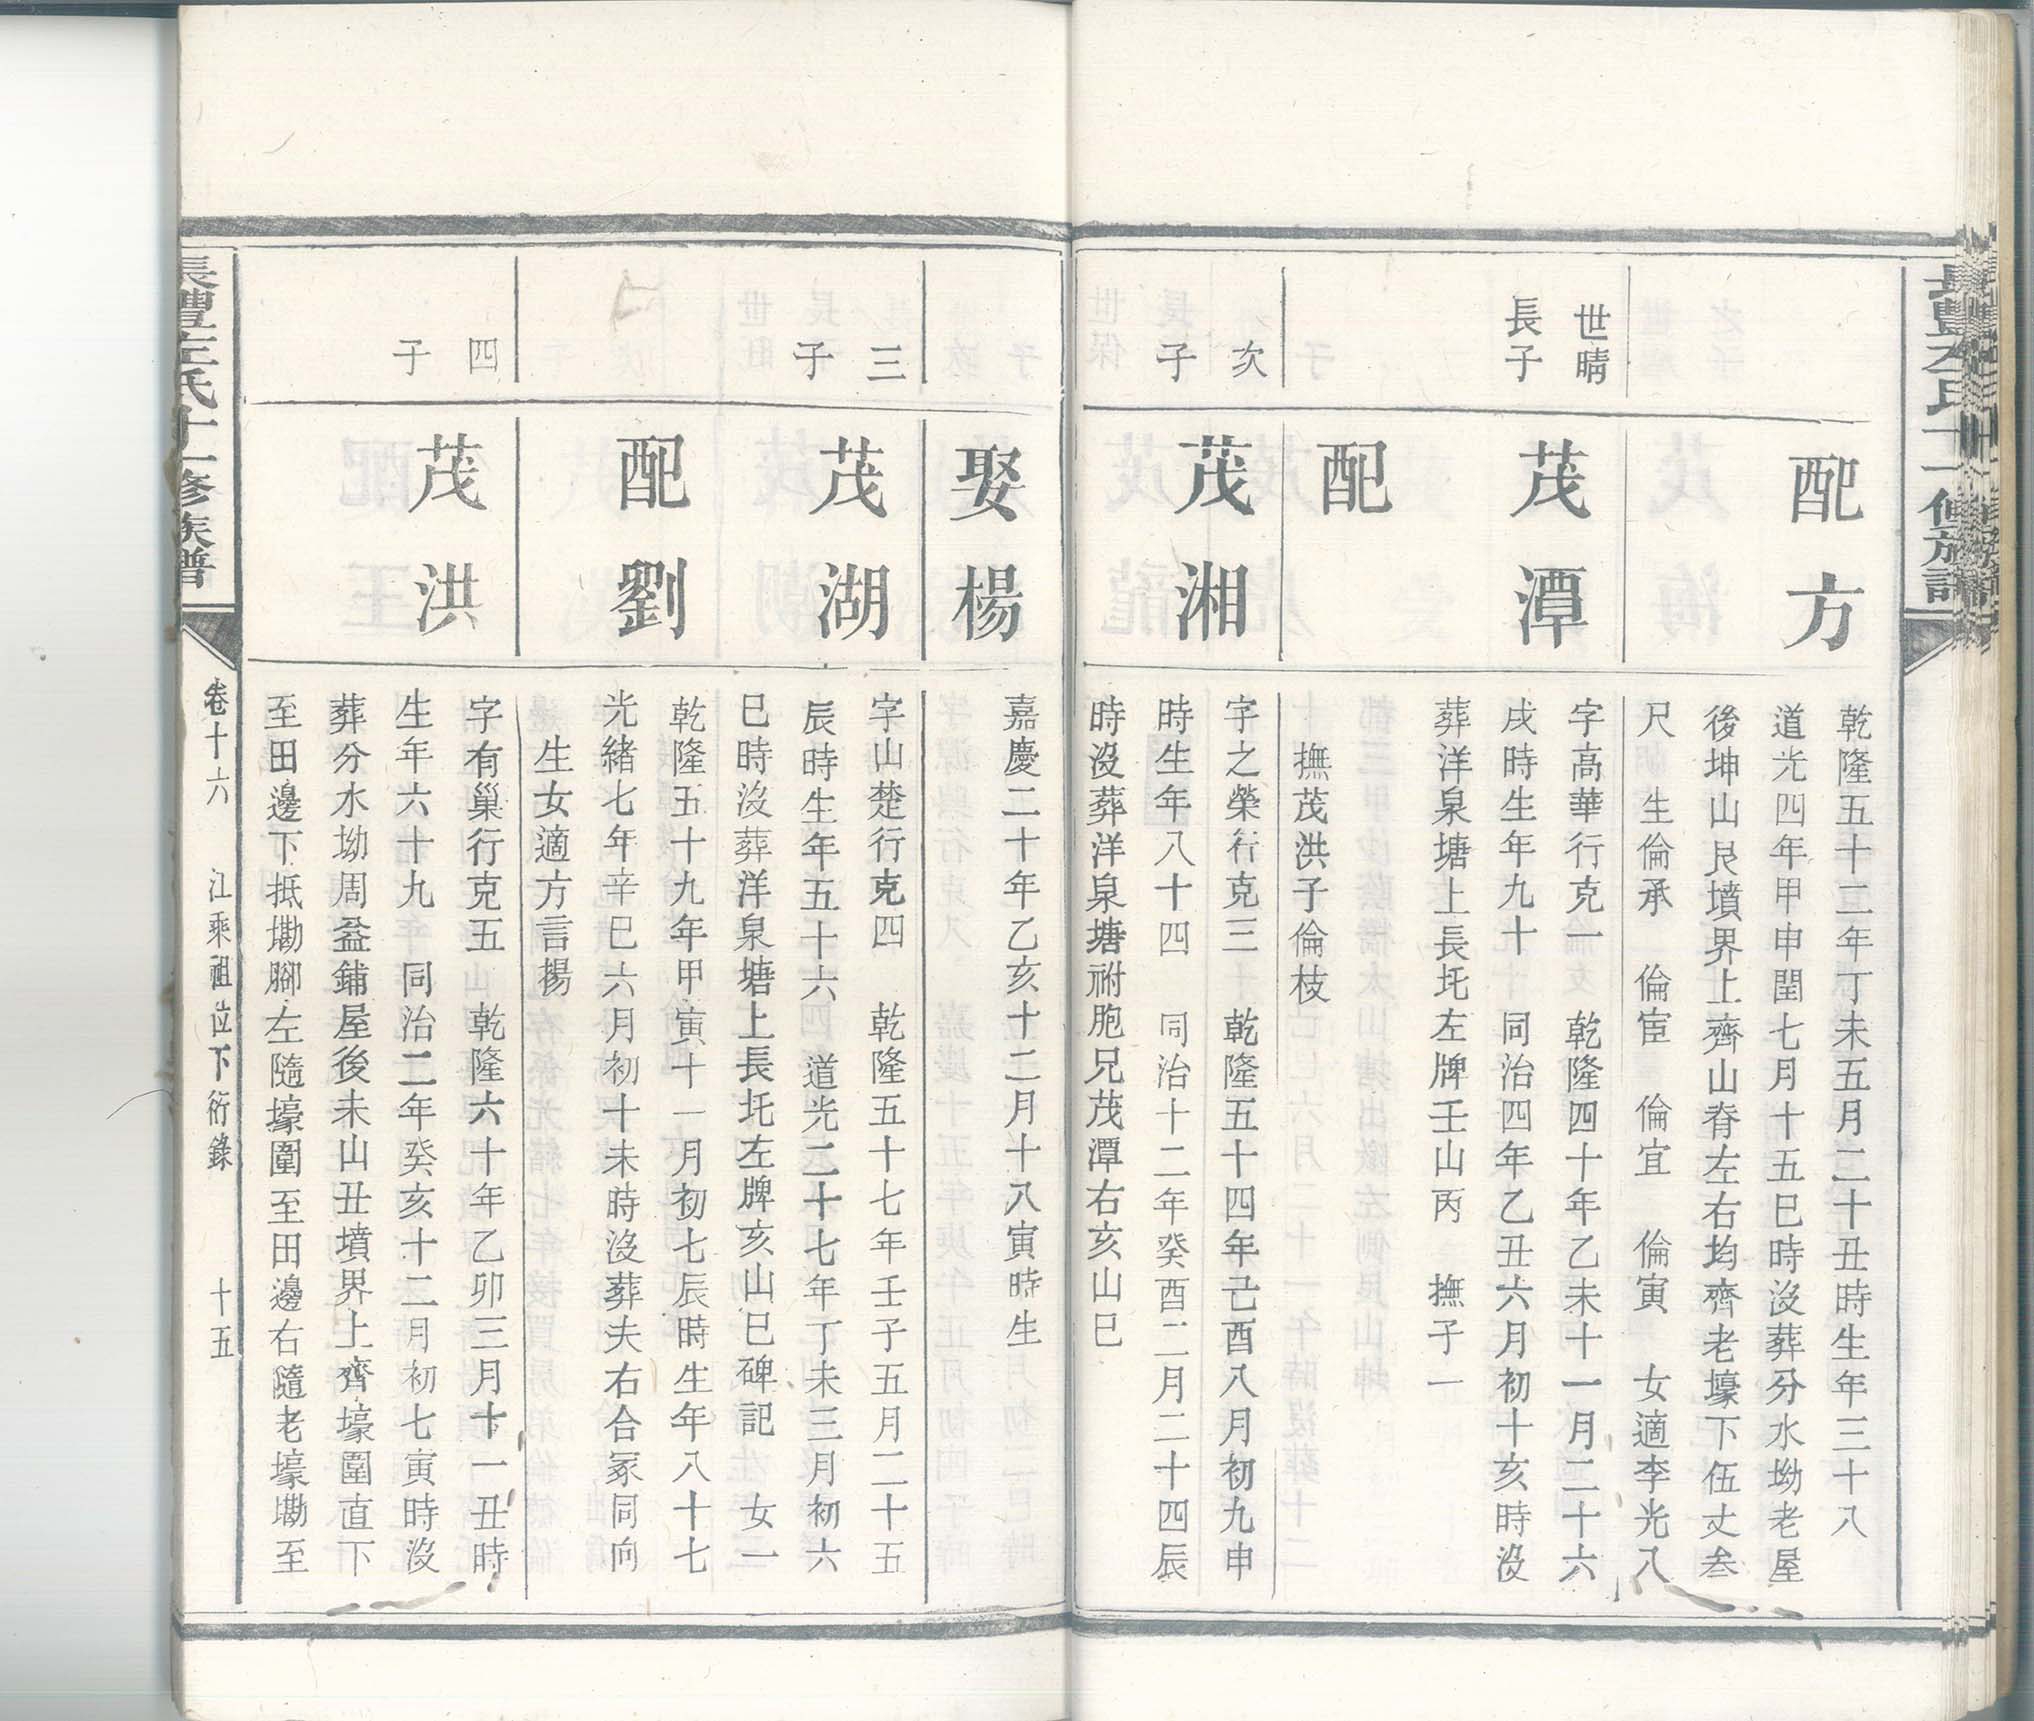 配方
乾隆五十二年丁未五月二十丑時生年三十八
道光四年甲申閏七月十五巳時沒葬分水坳老屋
後坤山艮墳界上齊山脊左右均齊老壕下伍丈叁
尺　生倫承　倫宦　倫宜　倫寅　女適李光八
世晴
長子
茂潭
字高華行克一　乾隆四十年乙未十一月二十六
戌時生年九十　同治四年乙丑六月初十亥時沒
葬洋泉塘上長圫左牌壬山丙　撫子一
配
撫茂洪子倫枝
次
子
茂湘
字之榮行克三　乾隆五十四年己酉八月初九申
時生年八十四　同治十二年癸酉二月二十四辰
時沒葬洋泉塘祔胞兄茂潭右亥山巳
娶楊
嘉慶二十年乙亥十二月十八寅時生
三
子
茂湖
字山楚行克四　乾隆五十七年壬子五月二十五
辰時生年五十六　道光二十七年丁未三月初六
巳時沒葬洋泉塘上長圫左牌亥山巳碑記　女一
配劉
乾隆五十九年甲寅十一月初七辰時生年八十七
光緒七年辛巳六月初十未時沒葬夫右合冢同向
生女適方言揚
四
子
茂洪
字有巢行克五　乾隆六十年乙卯三月十一丑時
生年六十九　同治二年癸亥十二月初七寅時沒
葬分水坳周益鋪屋後未山丑墳界上齊壕圍直下
至田邊下抵墈腳左隨壕圍至田邊右隨老壕墈至
長豐左氏十一修族譜
卷十六　江乘祖位下衍錄　十五